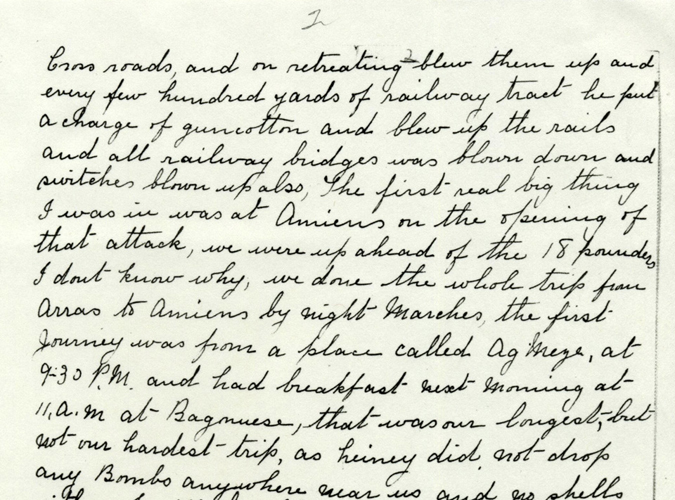 2
Cross roads, and on retreating blew them up and
every few hundred yards of railway tract he put
a charge of guncotton and blew up the rails
and all railway bridges was blown down and
switches blown up also, The first real big thing
I was in was at Amiens on the opening of
that attack, we were up ahead of the 18 pounders
I dont know why, we done the whole trip from
Arras to Amiens by night Marches, the first
Journey was from a place called Ag Meze, at
9-30 P.M. and had breakfast next Morning at
11, a.m at Bagnuese, that was our longest, but
not our hardest trip, as heiney did not drop
any Bombs anywhere near us and no shells